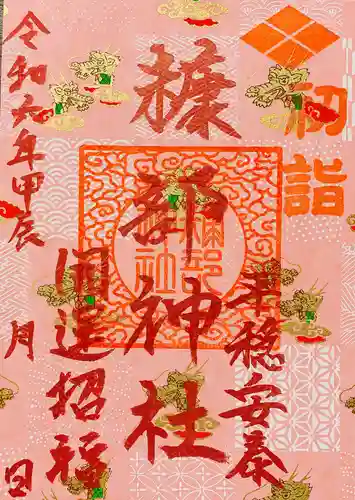 初詣
平穏安泰
糠部神社
糠部神社
開運招福
令和六年甲辰
月
日